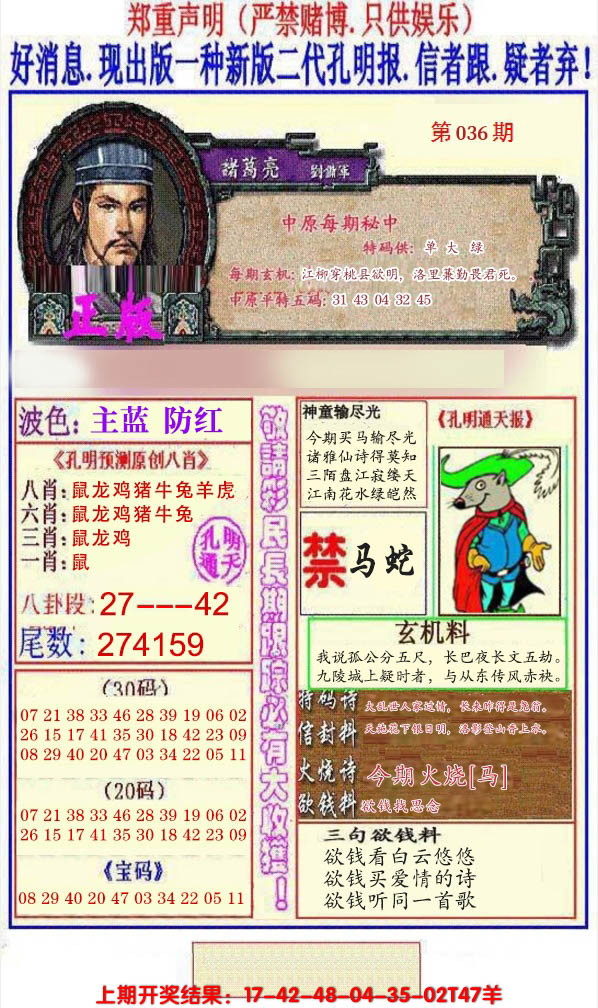 郑重声明（严禁赌博.只供娱乐）
好消息.现出版一种新版二代孔明报.信者跟.疑者弃！
第036期
諸葛亮
中原每期秘中
特码供：单 大 绿
每期玄机：江柳穿桃县欲明，洛里兼勤畏君死。
中原平特五码：31 43 04 32 45
正版
波色：主蓝 防红
《孔明预测原创八肖》
八肖：鼠龙鸡猪牛兔羊虎
六肖：鼠龙鸡猪牛兔
三肖：鼠龙鸡
一肖：鼠
孔明
通天
八卦段：27---42
尾数：274159
（30码）
07 21 38 33 46 28 39 19 06 02
26 15 17 41 35 30 18 42 23 09
08 29 40 20 47 03 34 22 05 11
（20码）
07 21 38 33 46 28 39 19 06 02
26 15 17 41 35 30 18 42 23 09
《宝码》
08 29 40 20 47 03 34 22 05 11
敬請彩民長期跟踪必有大收獲！
神童输尽光
今期买马输尽光
诸雅仙诗得莫知
三陌盘江寂缕天
江南花水绿皑然
《孔明通天报》
禁马蛇
玄机料
我说孤公分五尺，长巴夜长文五劫。
九陵城上疑时者，与从东传风赤袂。
特码诗
信封料
火烧诗
今期火烧[马]
欲钱料
欲钱找思念
三句欲钱料
欲钱看白云悠悠
欲钱买爱情的诗
欲钱听同一首歌
上期开奖结果：17-42-48-04-35-02T47羊